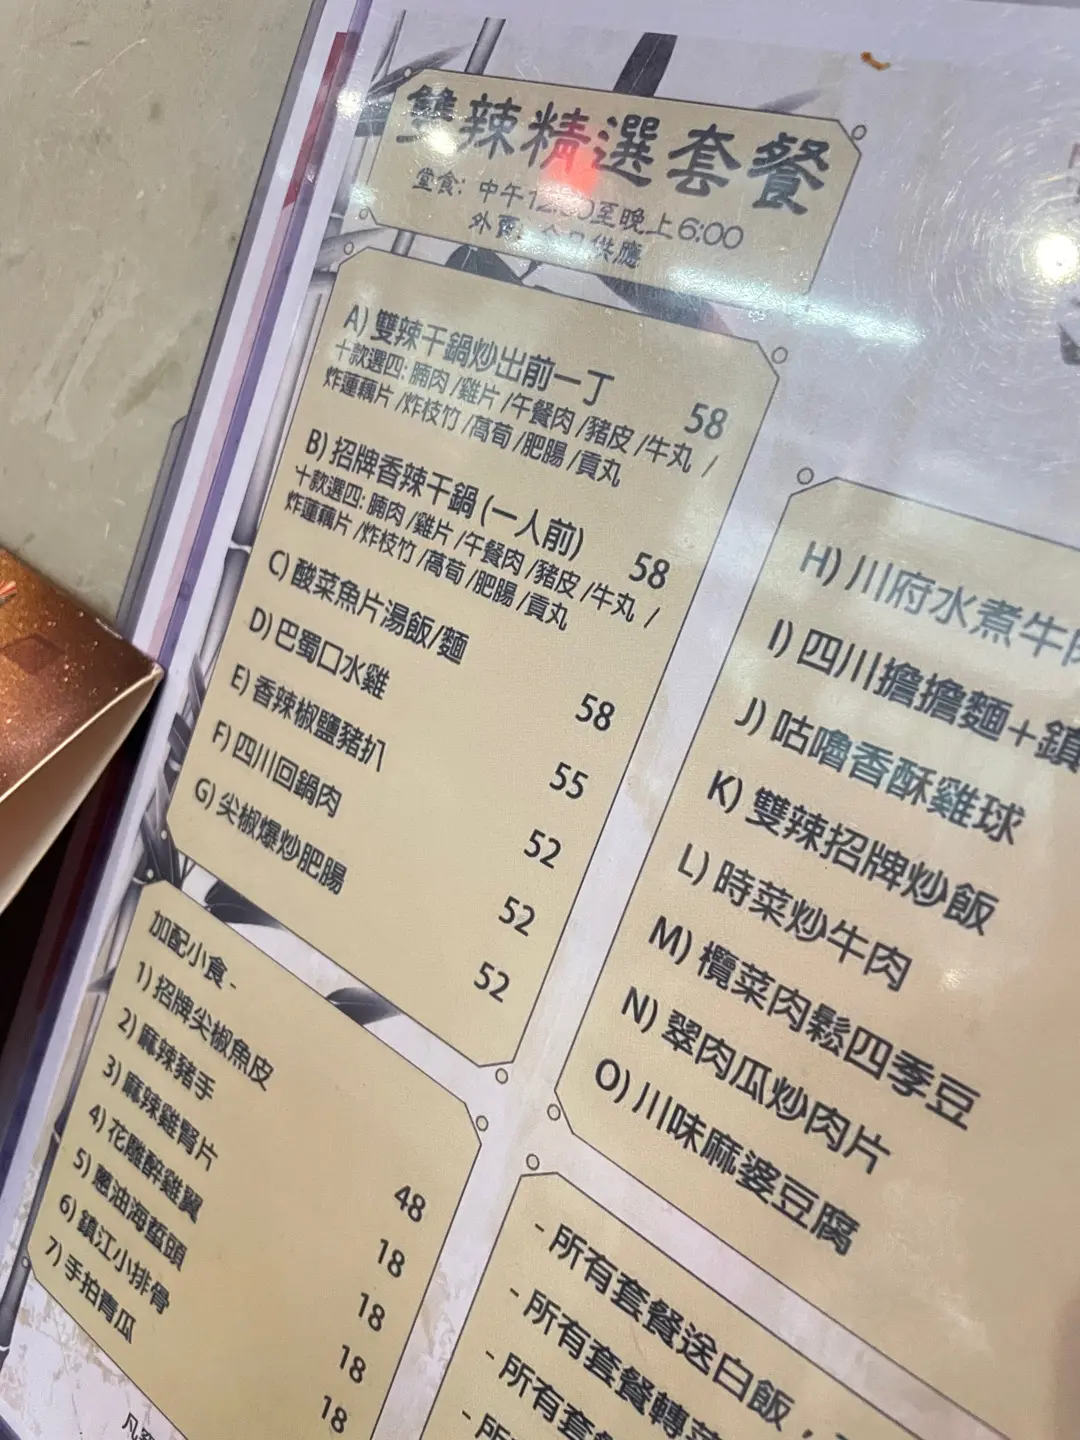 雙辣精選套餐
堂食: 中午12:30至晚上6:00
外賣: 全日供應
A) 雙辣干鍋炒出前一丁 58
十款選四: 腩肉 /雞片 /午餐肉 /豬皮 /牛丸 /
炸蓮藕片 /炸枝竹 /萵荀 /肥腸 /貢丸
B) 招牌香辣干鍋 (一人前) 58
十款選四: 腩肉 /雞片 /午餐肉 /豬皮 /牛丸 /
炸蓮藕片 /炸枝竹 /萵荀 /肥腸 /貢丸
C) 酸菜魚片湯飯/麵 58
D) 巴蜀口水雞 55
E) 香辣椒鹽豬扒 52
F) 四川回鍋肉 52
G) 尖椒爆炒肥腸 52
加配小食 -
1) 招牌尖椒魚皮 48
2) 麻辣豬手 18
3) 麻辣雞腎片 18
4) 花雕醉雞翼 18
5) 蔥油海蜇頭 18
6) 鎮江小排骨
7) 手拍青瓜
H) 川府水煮牛肉
I) 四川擔擔麵+鎮
J) 咕嚕香酥雞球
K) 雙辣招牌炒飯
L) 時菜炒牛肉
M) 欖菜肉鬆四季豆
N) 翠肉瓜炒肉片
O) 川味麻婆豆腐
- 所有套餐送白飯，
- 所有套餐轉
- 所有套